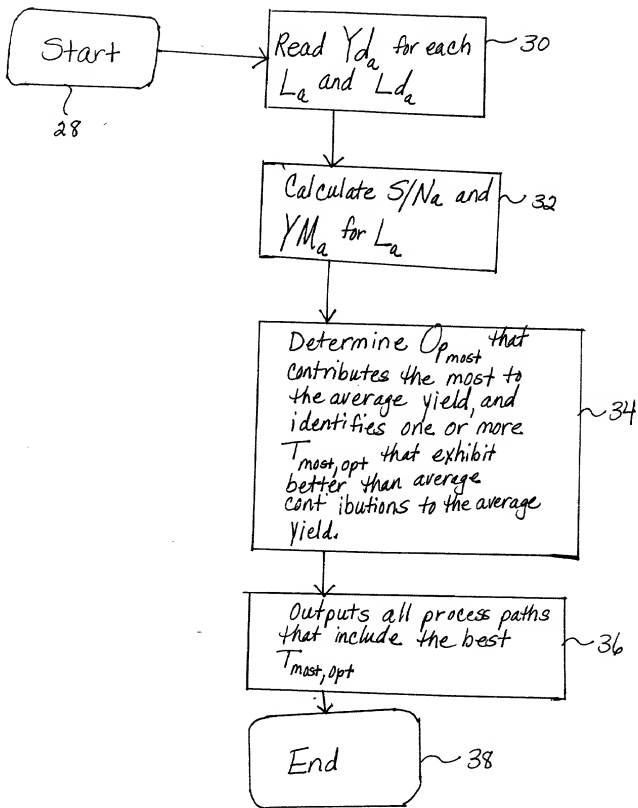 Start
28
Read Yda for each
La and Lda
30
Calculate S/Na and
YMa for La
32
Determine Opmost that
contributes the most to
the average yield, and
identifies one or more
Tmost,opt that exhibit
better than average
cont ibutions to the average
yield.
34
Outputs all process paths
that include the best
Tmost,opt
36
End
38